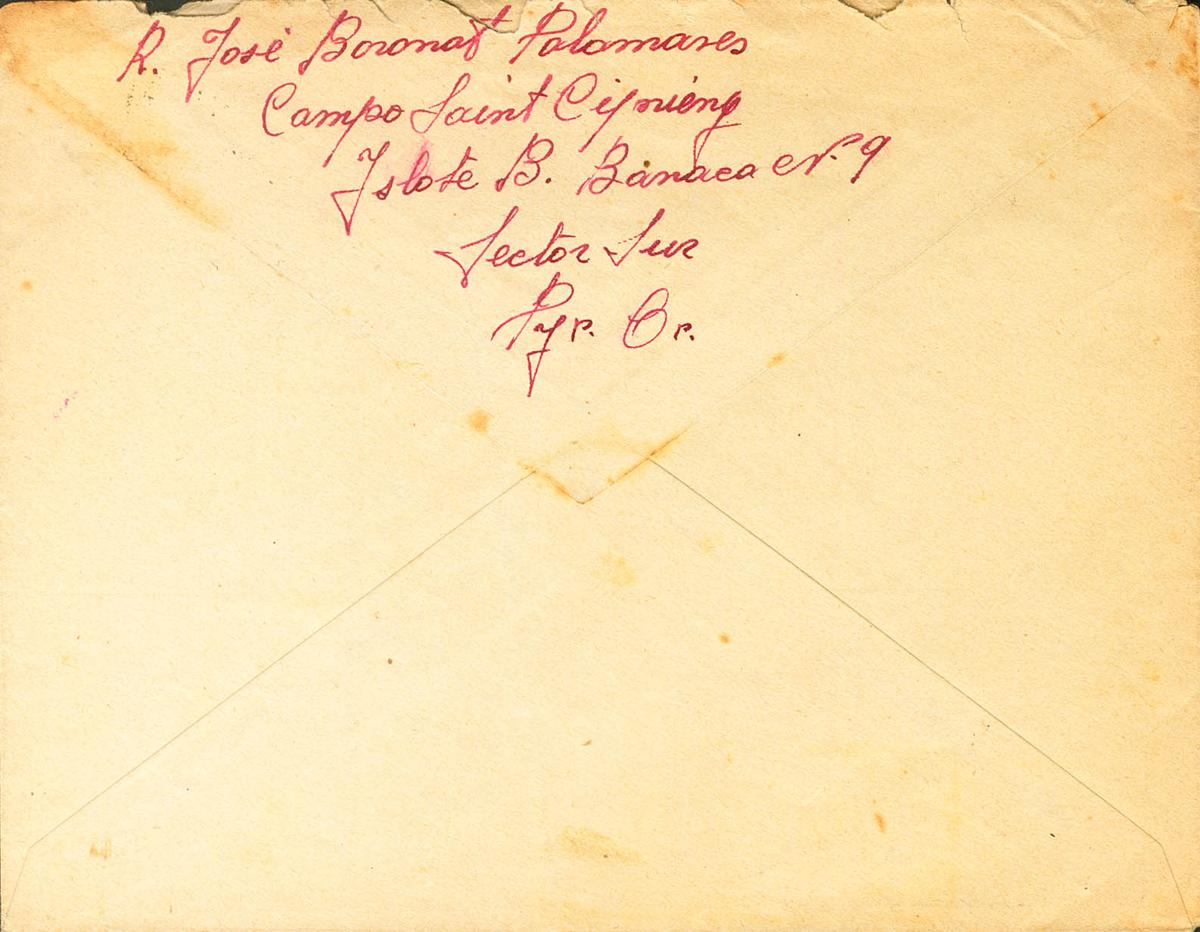 R. José Boronat Palamares
Campo Saint Cipriéng
Islote B. Baraca Nº 9
Sector Sur
Pyr. Or.